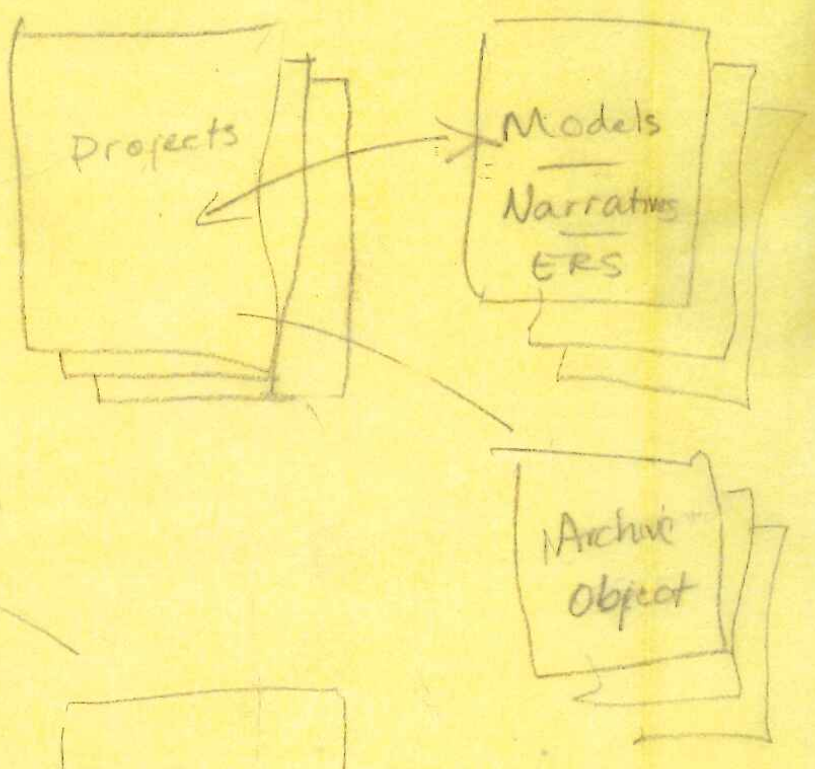 Projects
Models
Narratives
ERS
Archive
Object